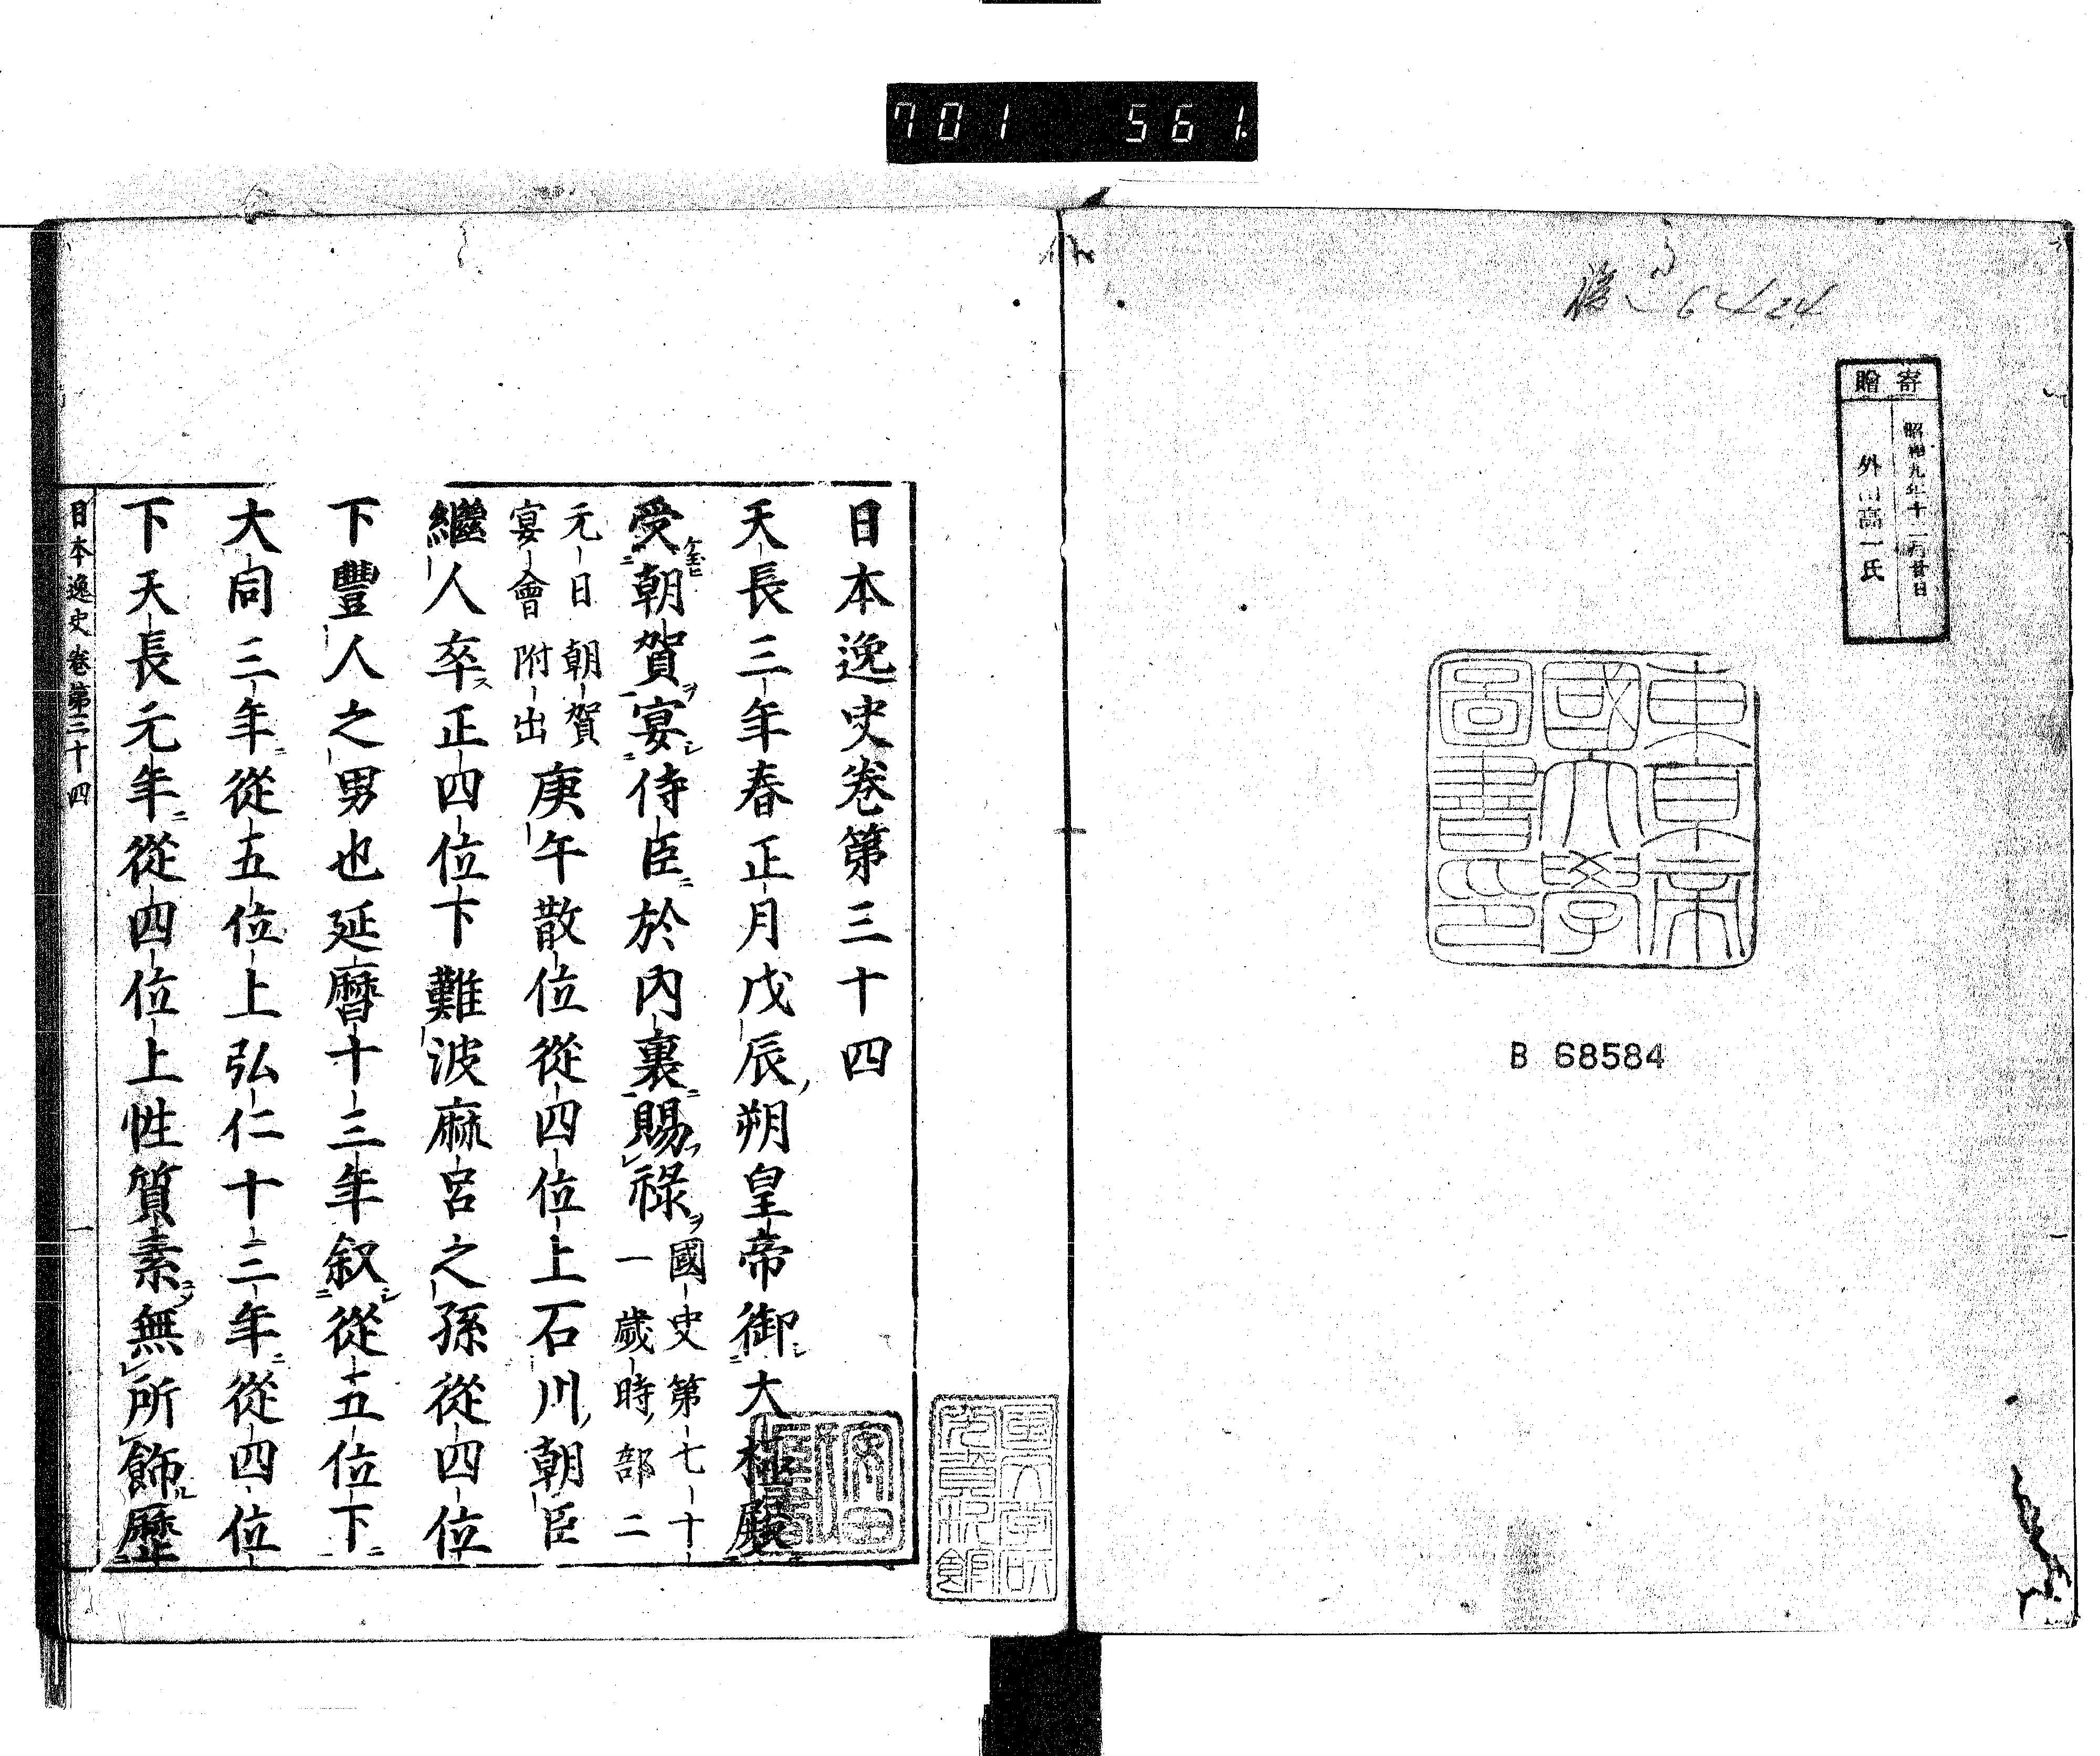 701 561.
寄贈
昭和九年十二月廿日
外山高一氏
東京帝
國大學
圖書印
B 68584
日本逸史卷第三十四
天長三年春正月戊辰朔皇帝御大極殿
受朝賀宴侍臣於內裏賜祿國史第七十
一歲時部二
元日朝賀
宴會附出
庚午散位從四位上石川朝臣
繼人卒正四位下難波麻呂之孫從四位
下豐人之男也延曆十三年叙從五位下
大同三年從五位上弘仁十三年從四位
下天長元年從四位上性質素無所飾歷
日本逸史卷第三十四
一